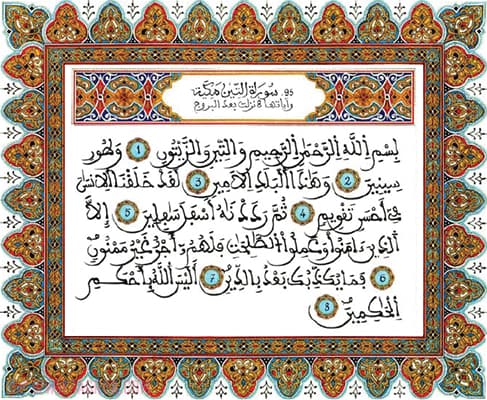 95 سورة التين مكية
وآياتها 8 نزلت بعد البروج
بسم الله الرحمن الرحيم والتين والزيتون 1 وطور
سينين 2 وهذا البلد الامين 3 لقد خلقنا الانسان
في أحسن تقويم 4 ثم رددنه أسفل سافلين 5 إلا
الذين ءامنوا وعملوا الصالحات فلهم أجر غير ممنون
6 فما يكذبك بعد بالدين 7 أليس الله بأحكم
الحكمين 8